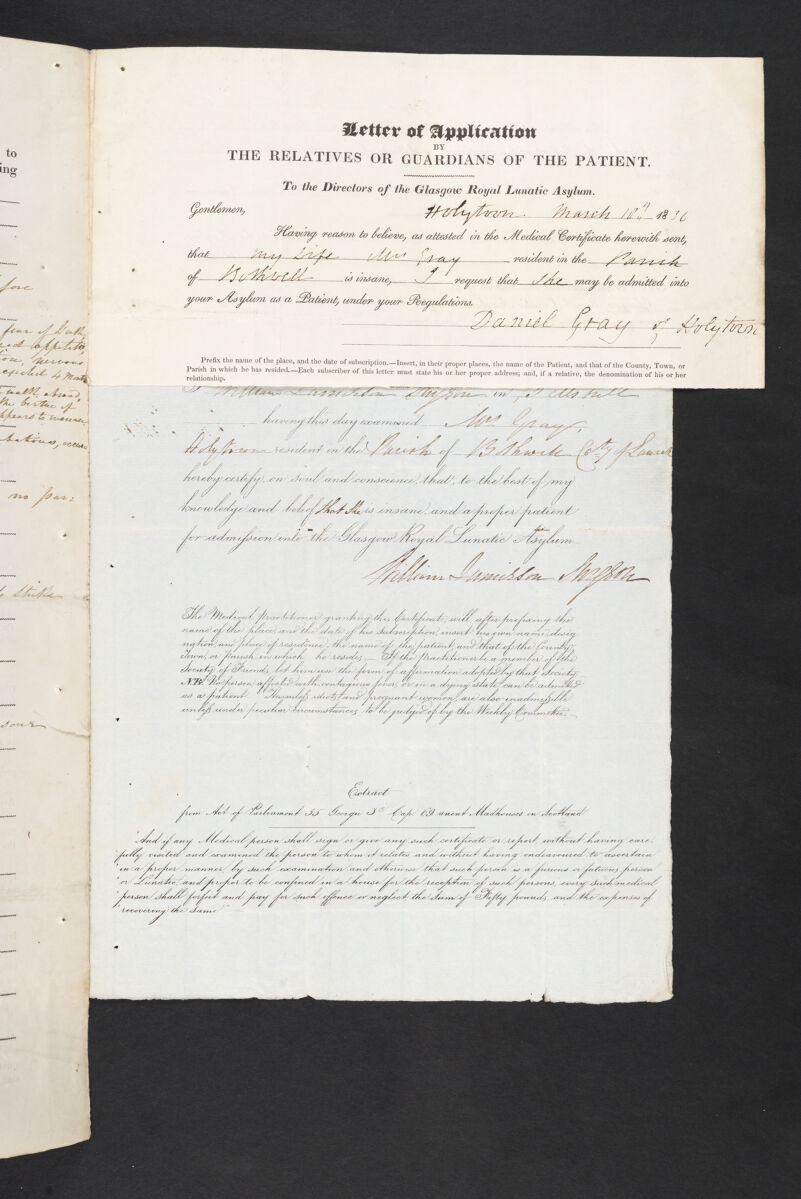 to
ing
fore
fear of death
bad appetite,
no par:
to strike
Letter of Application
BY
THE RELATIVES OR GUARDIANS OF THE PATIENT.
To the Directors of the Glasgow Royal Lunatic Asylum.
Gentlemen, Holytown. March 18th 1836
Having reason to believe, as attested in the Medical Certificate herewith sent,
that my Wife Mrs Gray resident in the Parish
of Bothwell is insane, I request that She may be admitted into
your Asylum as a Patient, under your Regulations.
Daniel Gray of Holytown
Prefix the name of the place, and the date of subscription.—Insert, in their proper places, the name of the Patient, and that of the County, Town, or
Parish in which he has resided.—Each subscriber of this letter must state his or her proper address; and, if a relative, the denomination of his or her
relationship.
I William Jamieson Surgeon in
having this day examined Mrs Gray,
Holytown resident in the Parish of Bothwell Coty of Lanark
hereby certify, on soul and conscience, that, to the best of my
knowledge and belief that She is insane, and a proper patient
for admission into the Glasgow Royal Lunatic Asylum
William Jamieson Surgeon
The Medical Practitioner granting this Certificate, will, after prefixing the
name of the place, and the date of his subscription, insert his own name, desig
nation, and place of residence, the name of the patient, and that of the County,
Town, or parish in which he resides.— If the Practitioner be a member of the
Society of Friends, let him use the form of affirmation adopted by that Society.
N.B. No person affected with contagious fever, or in a dying state can be admitted
as a patient. Harmless idiots, and pregnant women, are also inadmissible
unless under peculiar circumstances, to be judged of by the Weekly Committee.
Extract
from Act of Parliament 55 George 3d Cap 69 anent Madhouses in Scotland
"And if any Medical person shall sign or give any such certificate or report, without having care
"fully visited and examined the person to whom it relates and without having endeavoured to ascertain
"in a proper manner by such examination and otherwise that such person is a furious or fatuous person
"or Lunatic, and proper to be confined in a house for the reception of such persons, every such medical
"person shall forfeit and pay for such offence or neglect the sum of Fifty pounds, and the expenses of
"recovering the same